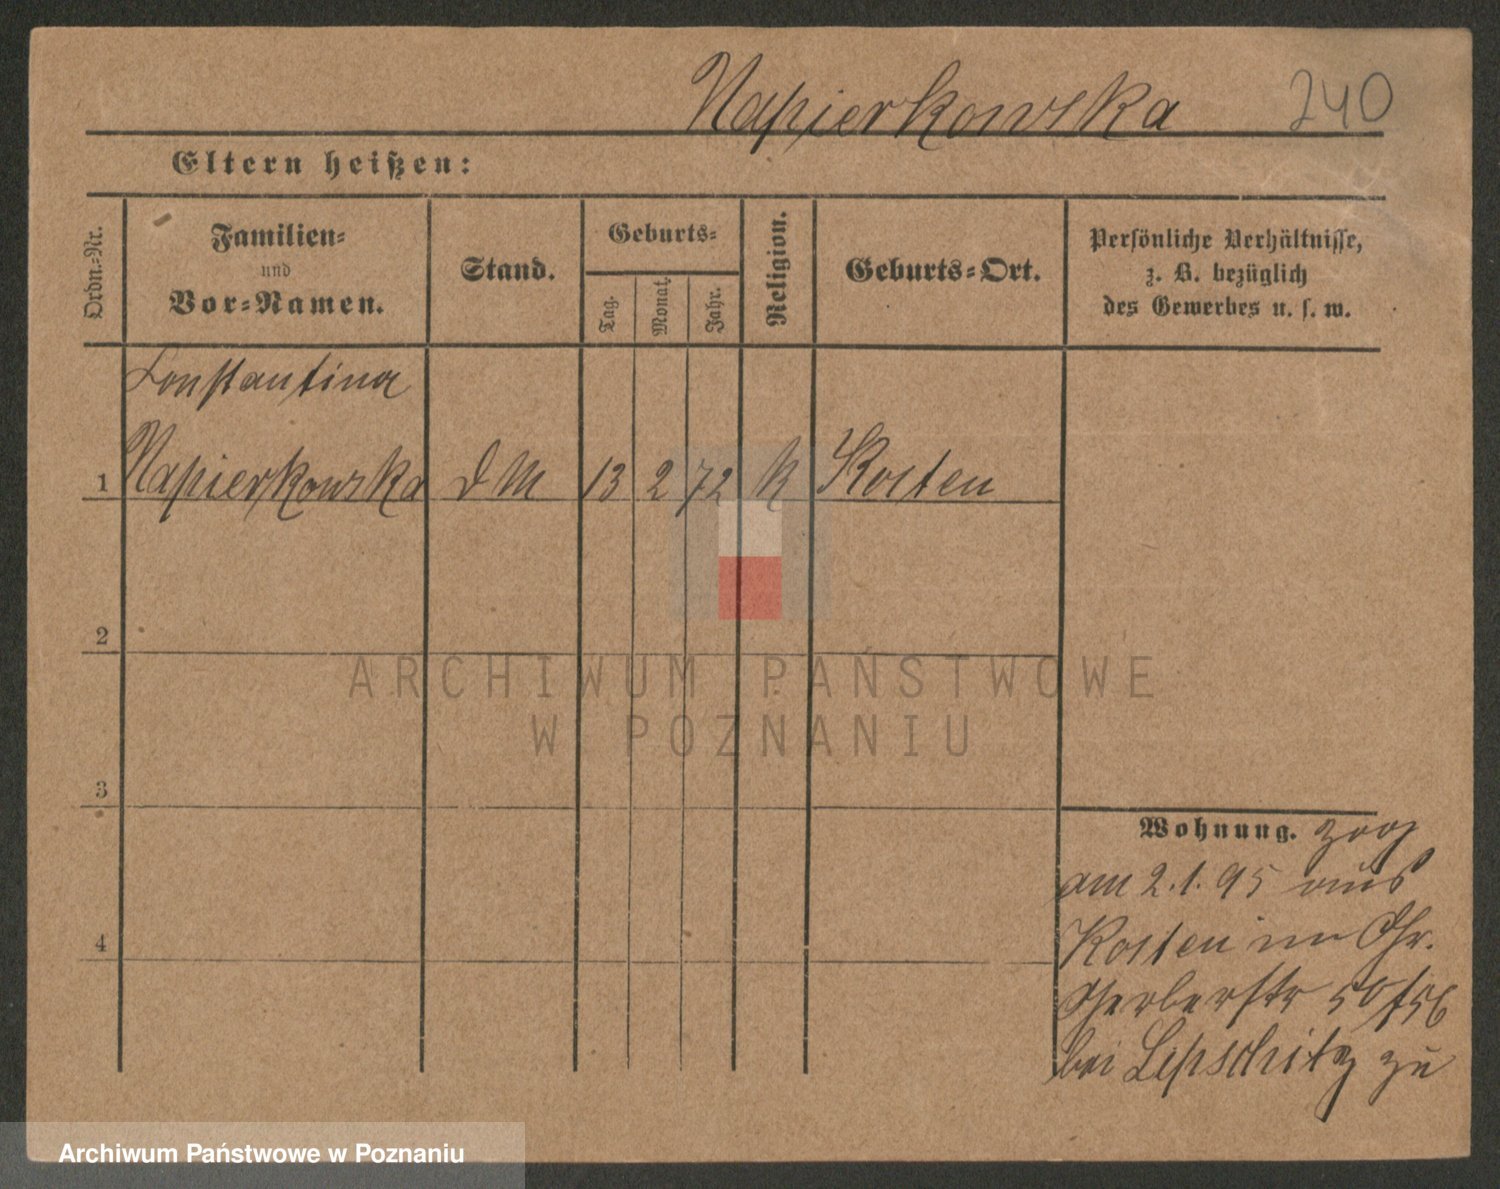 Napierkowska 240
Eltern heißen:
Ordn.-Nr.
Familien-
und
Vor-Namen.
Stand.
Geburts-
Tag.
Monat.
Jahr.
Religion.
Geburts-Ort.
Persönliche Verhältnisse,
z. B. bezüglich
des Gewerbes u. s. w.
Constantina
1 Napierkowska d M 13 2 72 K Kosten
2
3
4
Wohnung. zog
am 2.1.95 aus
Kosten in Gr.
Gerberstr 50/56
bei Lipschitz zu
ARCHIWUM PAŃSTWOWE
W POZNANIU
Archiwum Państwowe w Poznaniu